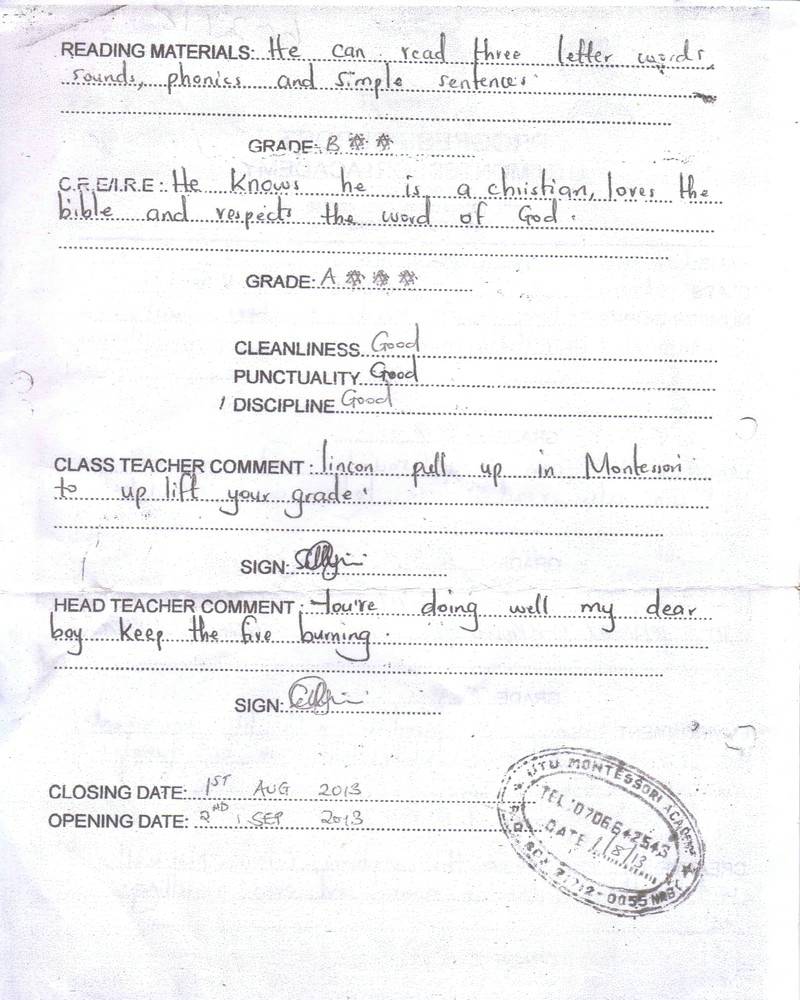 READING MATERIALS: He can read three letter words,
sounds, phonics and simple sentences.
GRADE: B
C.R.E/I.R.E: He knows he is a christian, loves the
bible and respects the word of God.
GRADE: A
CLEANLINESS Good
PUNCTUALITY Good
DISCIPLINE Good
CLASS TEACHER COMMENT: lincon pull up in Montessori
to up lift your grade.
SIGN:
HEAD TEACHER COMMENT: You're doing well my dear
boy. Keep the fire burning.
SIGN:
CLOSING DATE: 1ST AUG 2013
OPENING DATE: 2ND SEP 2013
UTU MONTESSORI ACADEMY
TEL: 0706642543
DATE 1/8/13